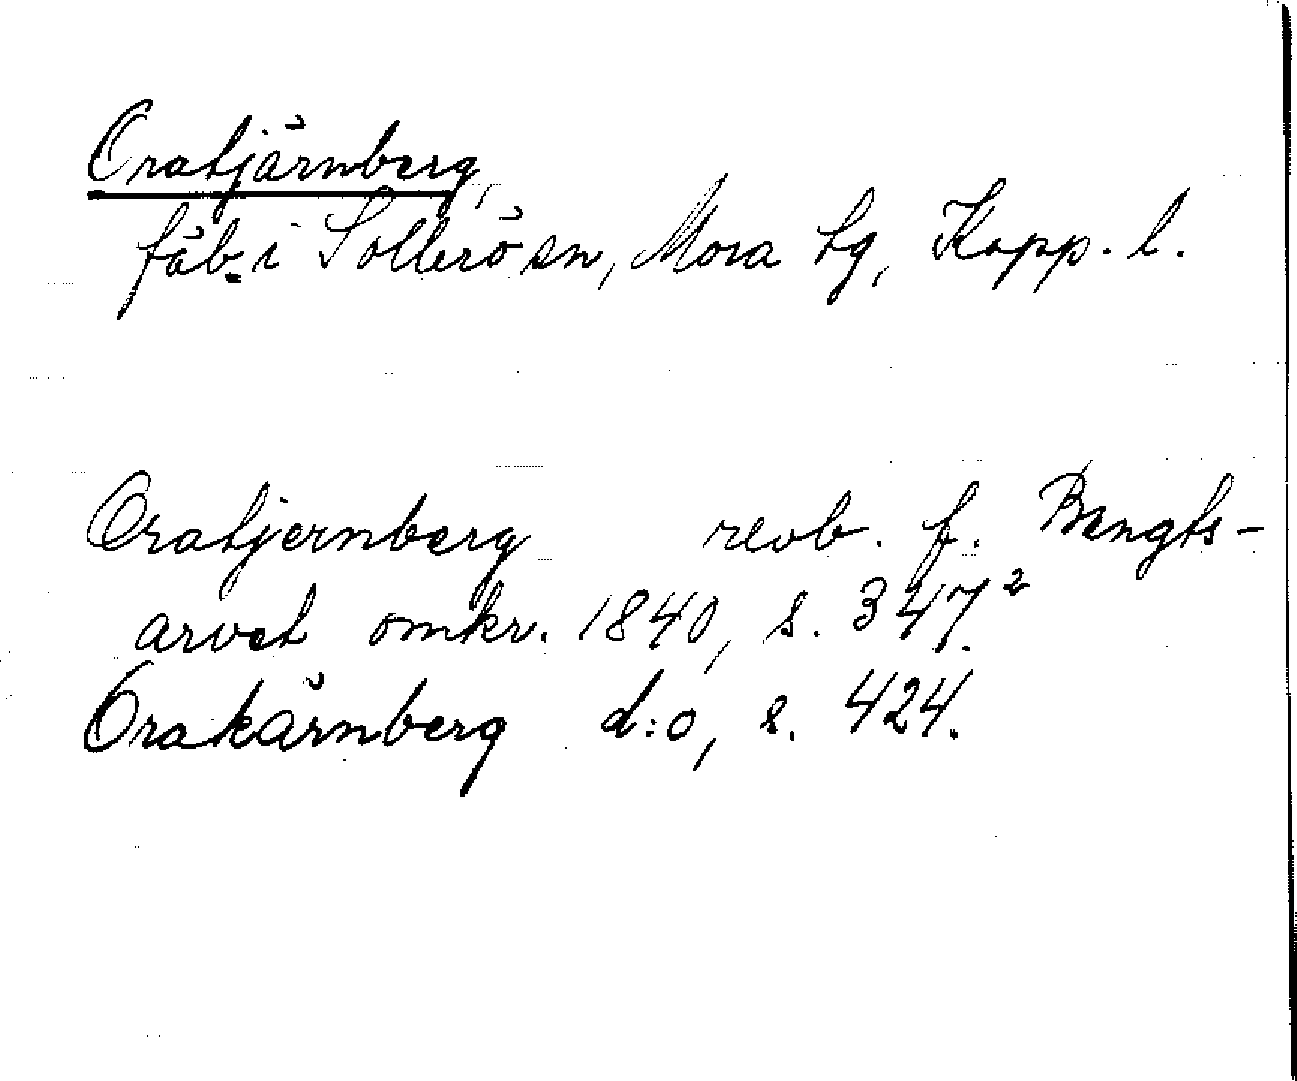 Oratjärnberg,
fäb. i Sollerö sn, Mora tg, Kopp. l.
Oratjernberg revb. f. Bengts-
arvet omkr. 1840, s. 347.²
Orakärnberg d:o, s. 424.